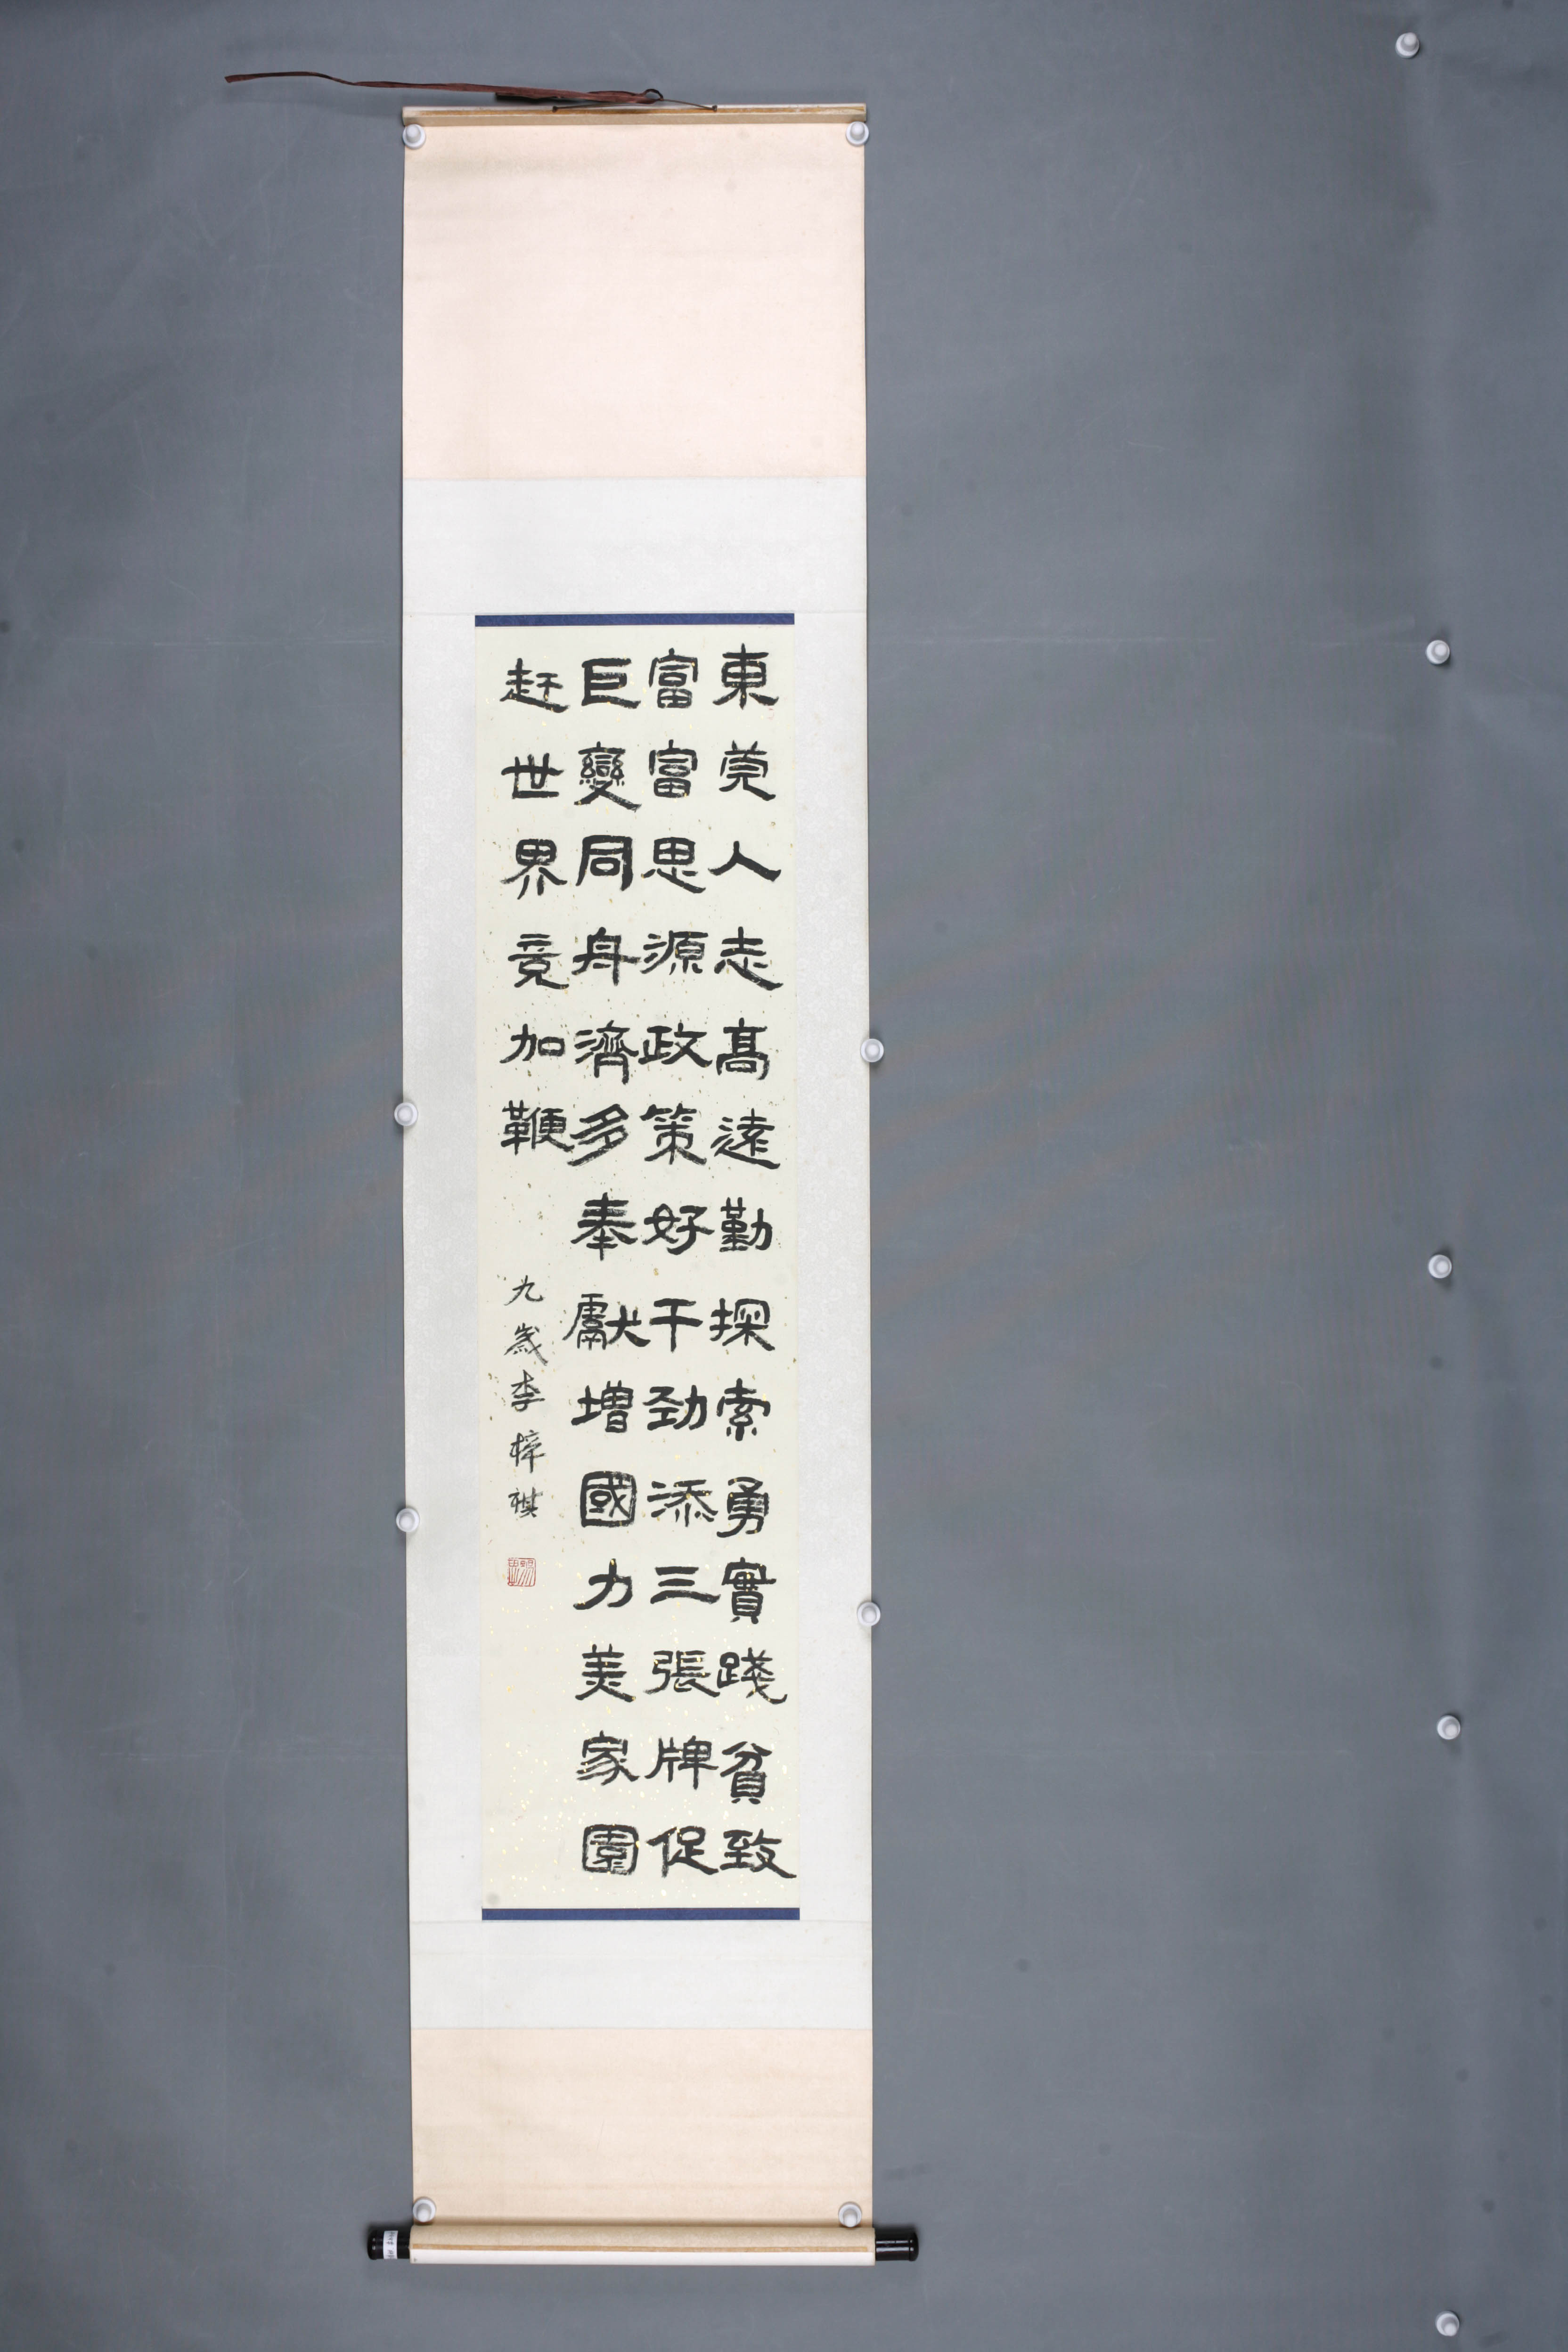 東莞人志高遠勤探索勇實踐貧致
富富思源政策好干劲添三張牌促
巨變同舟濟多奉獻增國力美家園
赶世界竞加鞭
九歲李梓祺